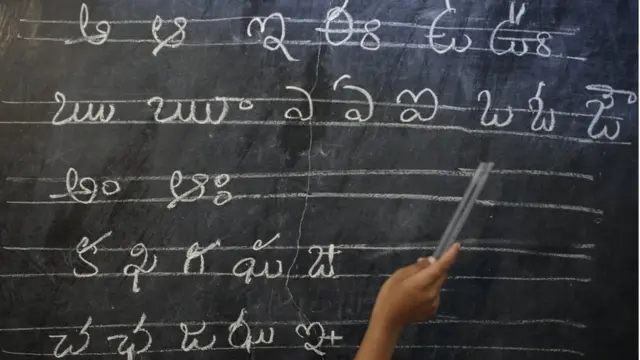 అ ఆ ఇ ఈ ఉ ఊ
ఋ ౠ ఎ ఏ ఐ ఒ ఓ ఔ
అం అః
క ఖ గ ఘ ఙ
చ ఛ జ ఝ ఞ